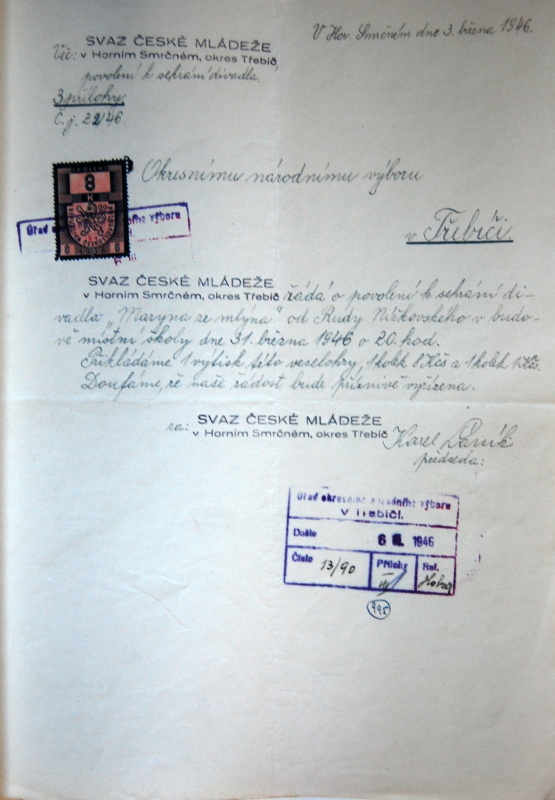 V Hor. Smrčném dne 3. března 1946.
SVAZ ČESKÉ MLÁDEŽE
v Horním Smrčném, okres Třebíč,
Věc:
povolení k sehrání divadla.
3 přílohy.
Č.j. 22/46.
Okresnímu národnímu výboru
v Třebíči.
8
K
8 8
Úřad okresního národního výboru
SVAZ ČESKÉ MLÁDEŽE
v Horním Smrčném, okres Třebíč žádá o povolení k sehrání di-
vadla "Maryna ze mlýna" od Rudy v budo-
vě místní školy dne 31. března 1946 o 20. hod.
Přikládáme 1 výtisk této veselohry, 1 kolek 8 Kčs a 1 kolek 1 Kčs.
Doufáme, že naše žádost bude příznivě vyřízena.
za:
SVAZ ČESKÉ MLÁDEŽE
v Horním Smrčném, okres Třebíč
Karel
předseda:
Úřad okresního národního výboru
v Třebíči.
Došlo 6 III. 1946
Číslo 13/90 Přílohy Ref.
995